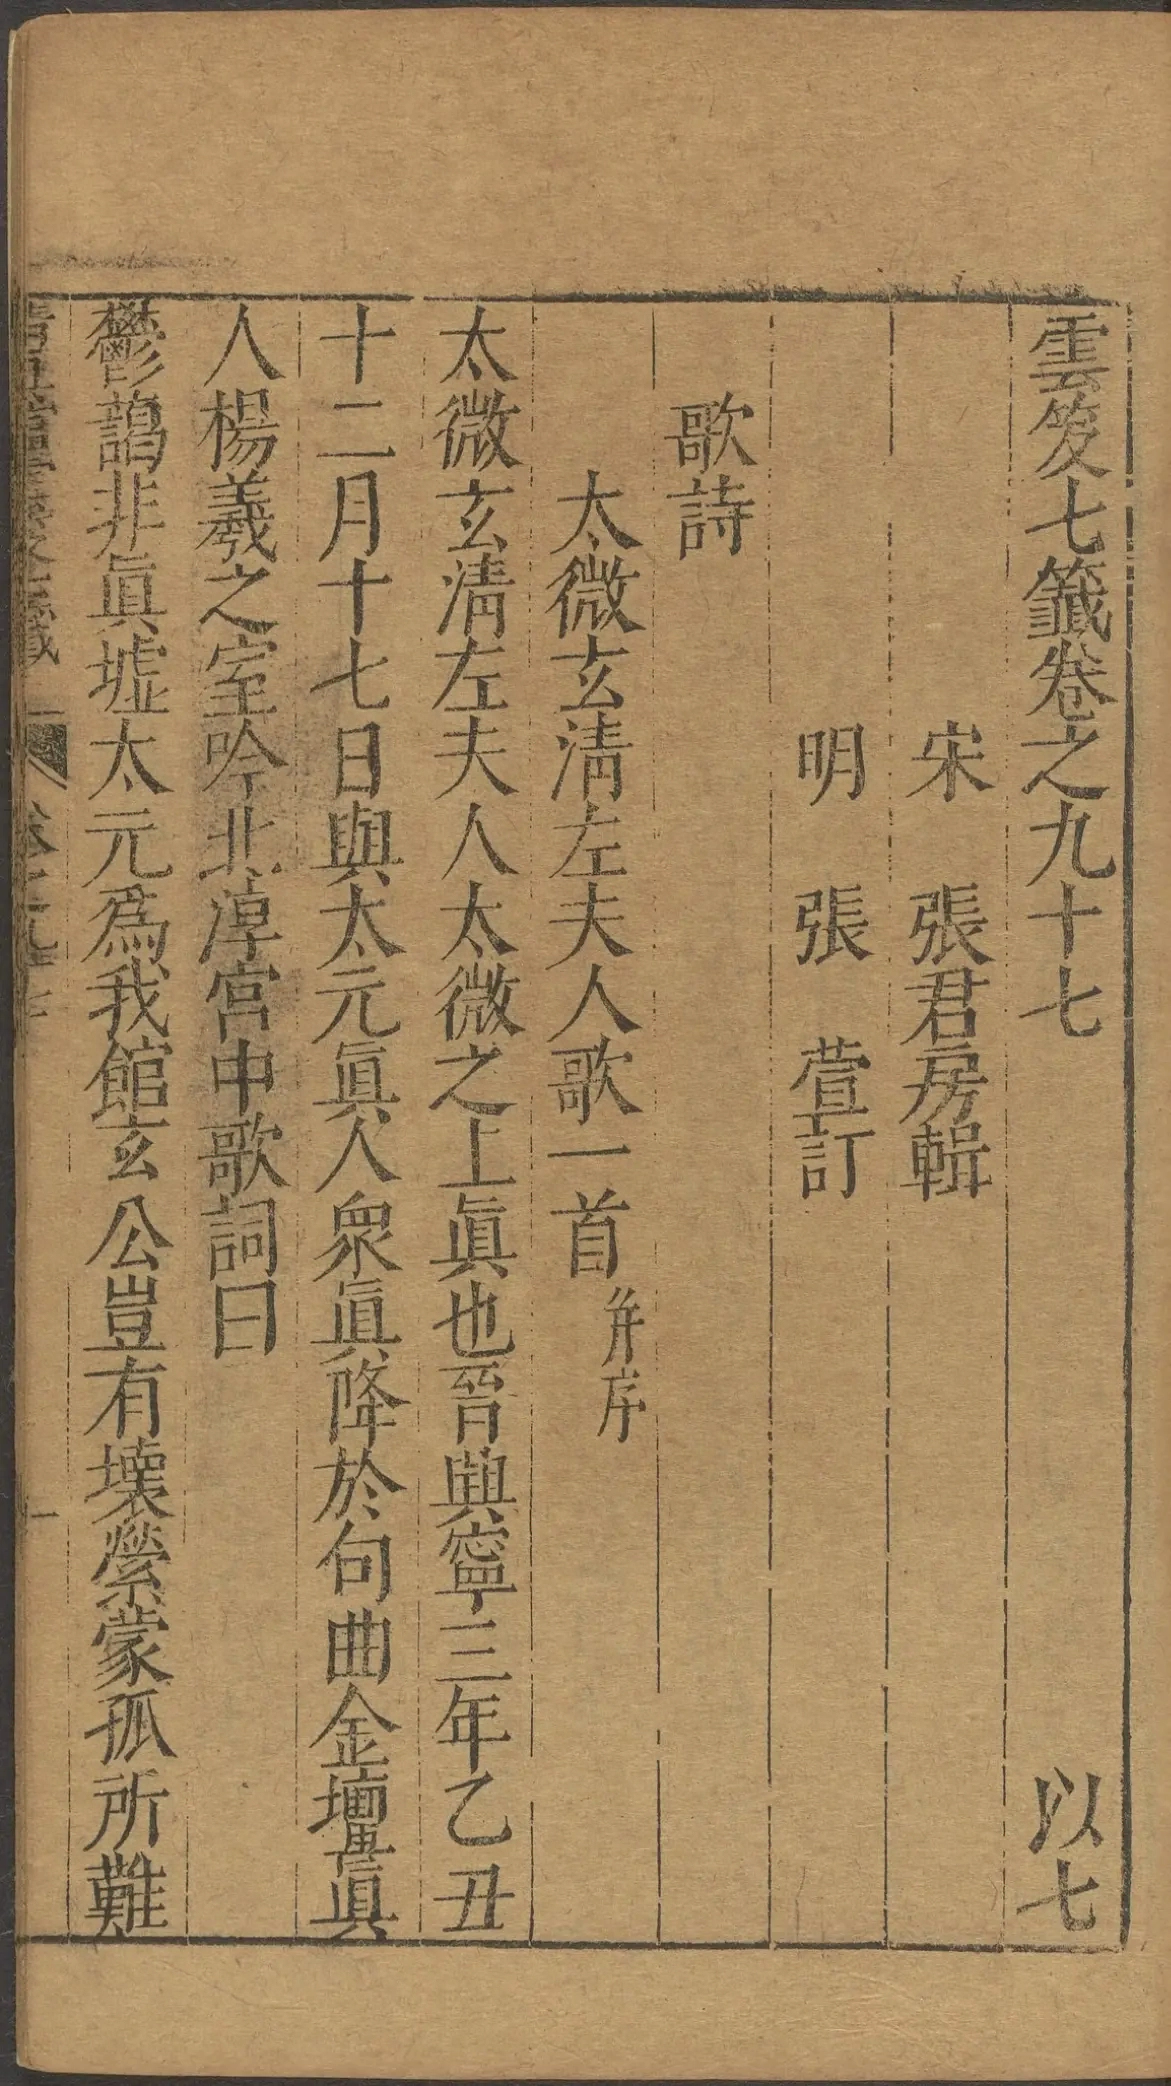 雲笈七籤卷之九十七 以七
宋 張君房輯
明 張 萱訂
歌詩
太微玄淸左夫人歌一首并序
太微玄淸左夫人太微之上眞也晉興寧三年乙丑
十二月十七日與太元眞人衆眞降於句曲金壇眞
人楊羲之室吟北渟宮中歌詞曰
鬱藹非眞墟太元爲我館玄公豈有壞縈蒙孤所難